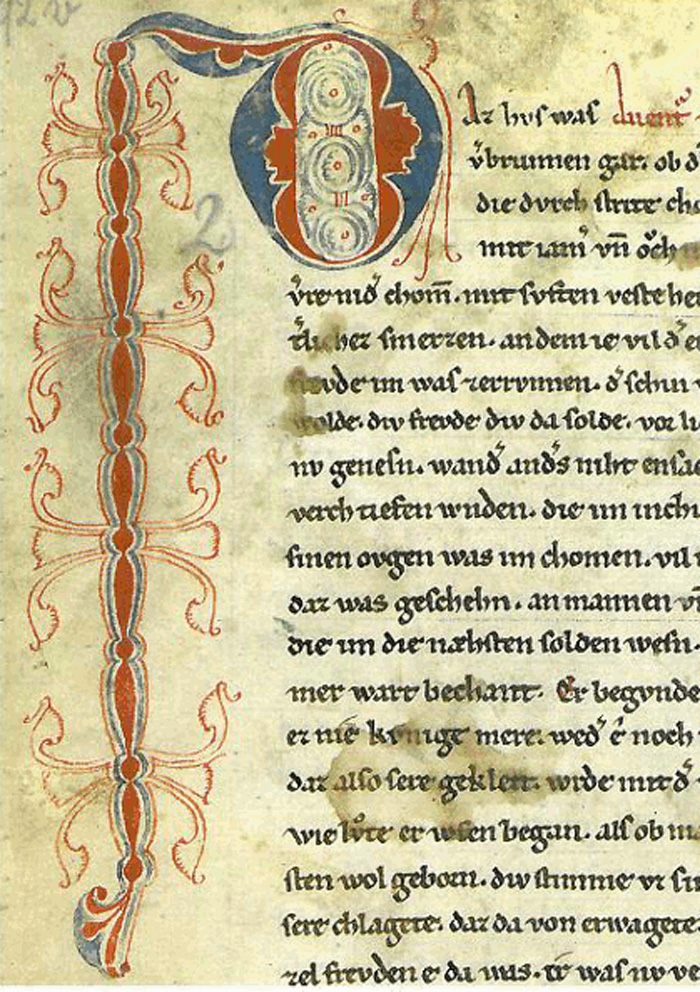 Daz hvs was
v̓brunnen gar. ob d̓
die dvrch strite cho
mit iam̓ vn̄ ǒch
v̓re nid̓ chom̄. mit svften veste be
t̓licher smerzen. an dem ie vil d̓ e
frevde im was zerrvnnen. d̓ schin v
wolde. div frevde div da solde. vor li
nv genesn. wand̓ and̓s niht ensa
verch tiefen wnden. die im
sinen ovgen was im chomen. vil
daz was geschehn. an mannen vn̄
die im die næhsten solden wesn.
mer wart bechant. Er begvnde
ez nie mere. wed̓ e̓ noch
daz also sere geklett. wrde mit d̓
wie lvͦte er wfen began. als ob
sten wol geborn. div stimme vz si
sere chlagete. daz da von erwagete
zel frevden e da was. er was nv ve